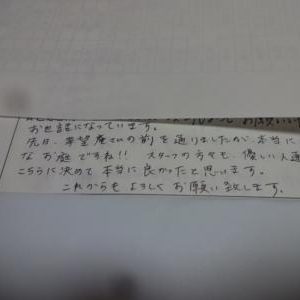 お世話になっています。
先日、希望庵さんの前を通りましたが、本当に
なお庭ですね!! スタッフの方々も、優しい人達
こちらに決めて本当に良かったと思います。
これからもよろしくお願い致します。